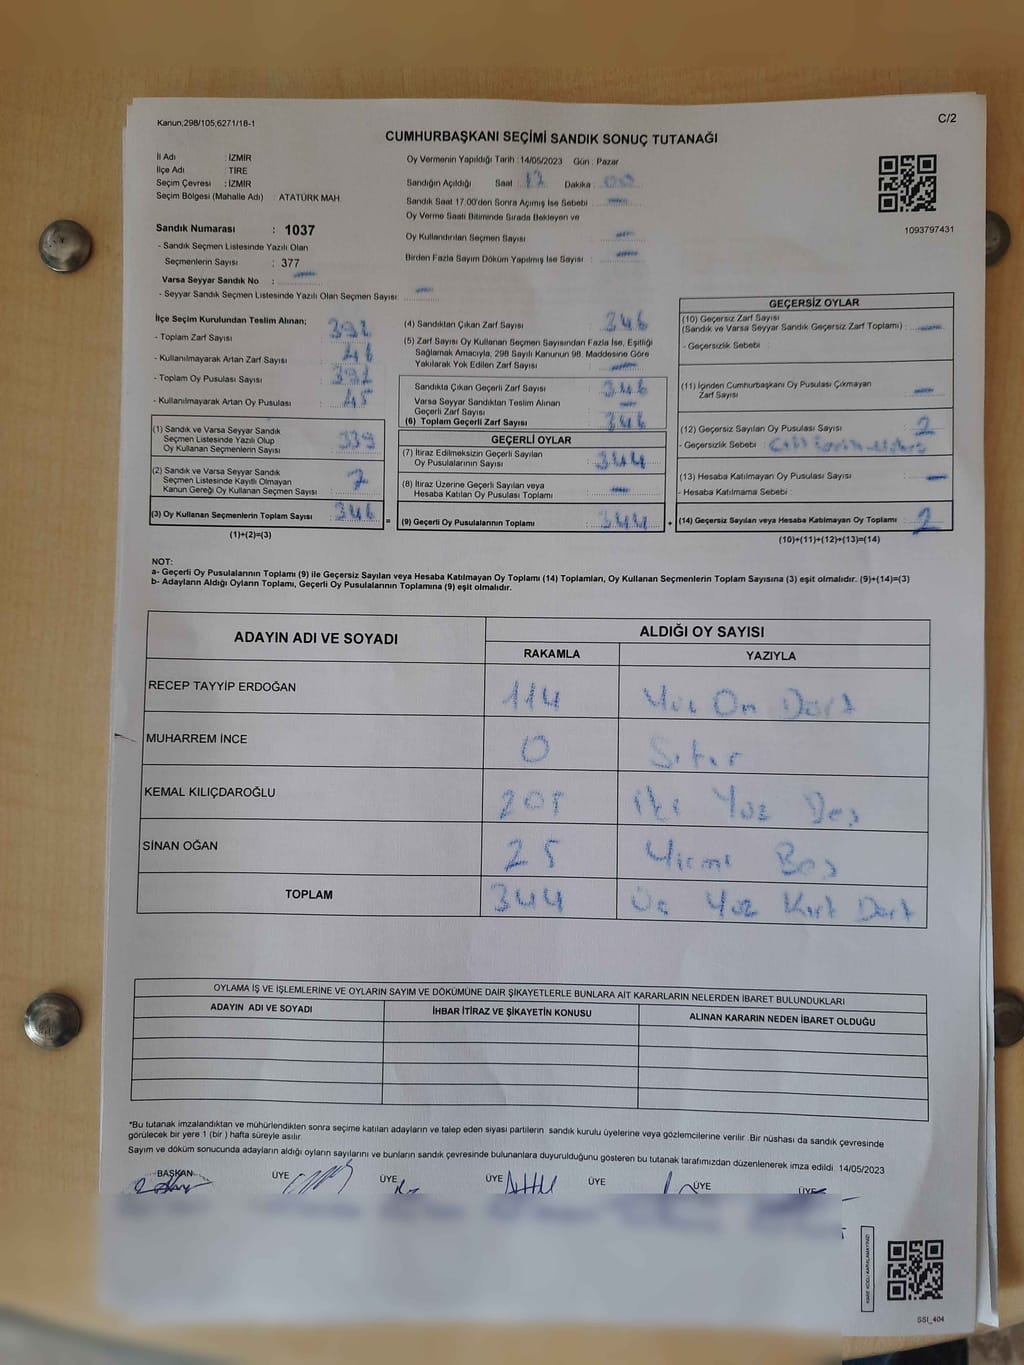 Kanun;298/105,6271/18-1
C/2
CUMHURBAŞKANI SEÇİMİ SANDIK SONUÇ TUTANAĞI
İl Adı : İZMİR
İlçe Adı : TİRE
Seçim Çevresi : İZMİR
Seçim Bölgesi (Mahalle Adı) : ATATÜRK MAH.
Oy Vermenin Yapıldığı Tarih : 14/05/2023 Gün : Pazar
Sandığın Açıldığı Saat : 17 Dakika : 00
Sandık Saat 17.00'den Sonra Açımış İse Sebebi :
Oy Verme Saati Bitiminde Sırada Bekleyen ve
Oy Kullandırılan Seçmen Sayısı :
Birden Fazla Sayım Döküm Yapılmış İse Sayısı :
1093797431
Sandık Numarası : 1037
- Sandık Seçmen Listesinde Yazılı Olan
Seçmenlerin Sayısı : 377
Varsa Seyyar Sandık No :
- Seyyar Sandık Seçmen Listesinde Yazılı Olan Seçmen Sayısı :
İlçe Seçim Kurulundan Teslim Alınan;
- Toplam Zarf Sayısı : 391
- Kullanılmayarak Artan Zarf Sayısı : 46
- Toplam Oy Pusulası Sayısı : 391
- Kullanılmayarak Artan Oy Pusulası : 45
(1) Sandık ve Varsa Seyyar Sandık
Seçmen Listesinde Yazılı Olup
Oy Kullanan Seçmenlerin Sayısı : 339
(2) Sandık ve Varsa Seyyar Sandık
Seçmen Listesinde Kayıtlı Olmayan
Kanun Gereği Oy Kullanan Seçmen Sayısı : 7
(3) Oy Kullanan Seçmenlerin Toplam Sayısı : 346 =
(1)+(2)=(3)
(4) Sandıktan Çıkan Zarf Sayısı : 346
(5) Zarf Sayısı Oy Kullanan Seçmen Sayısından Fazla İse, Eşitliği
Sağlamak Amacıyla, 298 Sayılı Kanunun 98. Maddesine Göre
Yakılarak Yok Edilen Zarf Sayısı :
Sandıkta Çıkan Geçerli Zarf Sayısı : 346
Varsa Seyyar Sandıktan Teslim Alınan
Geçerli Zarf Sayısı :
(6) Toplam Geçerli Zarf Sayısı : 346
GEÇERLİ OYLAR
(7) İtiraz Edilmeksizin Geçerli Sayılan
Oy Pusulalarının Sayısı : 344
(8) İtiraz Üzerine Geçerli Sayılan veya
Hesaba Katılan Oy Pusulası Toplamı :
(9) Geçerli Oy Pusulalarının Toplamı : 344 +
GEÇERSİZ OYLAR
(10) Geçersiz Zarf Sayısı
(Sandık ve Varsa Seyyar Sandık Geçersiz Zarf Toplamı) :
- Geçersizlik Sebebi :
(11) İçinden Cumhurbaşkanı Oy Pusulası Çıkmayan
Zarf Sayısı :
(12) Geçersiz Sayılan Oy Pusulası Sayısı : 2
- Geçersizlik Sebebi :
(13) Hesaba Katılmayan Oy Pusulası Sayısı :
- Hesaba Katılmama Sebebi :
(14) Geçersiz Sayılan veya Hesaba Katılmayan Oy Toplamı : 2
(10)+(11)+(12)+(13)=(14)
NOT:
a- Geçerli Oy Pusulalarının Toplamı (9) ile Geçersiz Sayılan veya Hesaba Katılmayan Oy Toplamı (14) Toplamları, Oy Kullanan Seçmenlerin Toplam Sayısına (3) eşit olmalıdır. (9)+(14)=(3)
b- Adayların Aldığı Oyların Toplamı, Geçerli Oy Pusulalarının Toplamına (9) eşit olmalıdır.
ADAYIN ADI VE SOYADI ALDIĞI OY SAYISI
RAKAMLA YAZIYLA
RECEP TAYYİP ERDOĞAN 114 Yüz On Dört
MUHARREM İNCE 0 Sıfır
KEMAL KILIÇDAROĞLU 205 iki Yüz Beş
SİNAN OĞAN 25 Yirmi Beş
TOPLAM 344 Üç Yüz Kırk Dört
OYLAMA İŞ VE İŞLEMLERİNE VE OYLARIN SAYIM VE DÖKÜMÜNE DAİR ŞİKAYETLERLE BUNLARA AİT KARARLARIN NELERDEN İBARET BULUNDUKLARI
ADAYIN ADI VE SOYADI İHBAR İTİRAZ VE ŞİKAYETİN KONUSU ALINAN KARARIN NEDEN İBARET OLDUĞU
*Bu tutanak imzalandıktan ve mühürlendikten sonra seçime katılan adayların ve talep eden siyasi partilerin sandık kurulu üyelerine veya gözlemcilerine verilir .Bir nüshası da sandık çevresinde
görülecek bir yere 1 (bir ) hafta süreyle asılır.
Sayım ve döküm sonucunda adayların aldığı oyların sayılarını ve bunların sandık çevresinde bulunanlara duyurulduğunu gösteren bu tutanak tarafımızdan düzenlenerek imza edildi. 14/05/2023
BAŞKAN ÜYE ÜYE ÜYE ÜYE ÜYE ÜYE
KARE KODU KAPALAMAYINIZ!
SSI_404